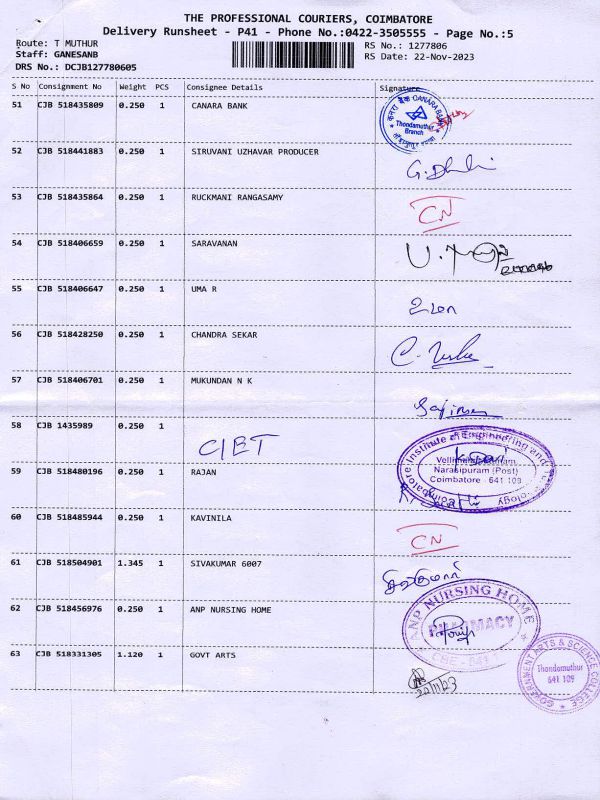 THE PROFESSIONAL COURIERS, COIMBATORE
Delivery Runsheet - P41 - Phone No.:0422-3505555 - Page No.:5
Route: T MUTHUR
RS No.: 1277806
Staff: GANESANB
RS Date: 22-Nov-2023
DRS No.: DCJB127780605
S No Consignment No Weight PCS Consignee Details Signature
51 CJB 518435809 0.250 1 CANARA BANK
केनरा बैंक CANARA BANK
Thondamuthur
Branch
52 CJB 518441883 0.250 1 SIRUVANI UZHAVAR PRODUCER
53 CJB 518435864 0.250 1 RUCKMANI RANGASAMY
CN
54 CJB 518406659 0.250 1 SARAVANAN
55 CJB 518406647 0.250 1 UMA R
உமா
56 CJB 518428250 0.250 1 CHANDRA SEKAR
57 CJB 518406701 0.250 1 MUKUNDAN N K
58 CJB 1435989 0.250 1
CIET
Coimbatore Institute of Engineering and Technology
Narasipuram (Post)
Coimbatore - 641 109
59 CJB 518480196 0.250 1 RAJAN
60 CJB 518485944 0.250 1 KAVINILA
CN
61 CJB 518504901 1.345 1 SIVAKUMAR 6007
62 CJB 518456976 0.250 1 ANP NURSING HOME
ANP NURSING HOME
PHARMACY
63 CJB 518331305 1.120 1 GOVT ARTS
22/11/23
GOVERNMENT ARTS & SCIENCE COLLEGE
Thondamuthur
641 109